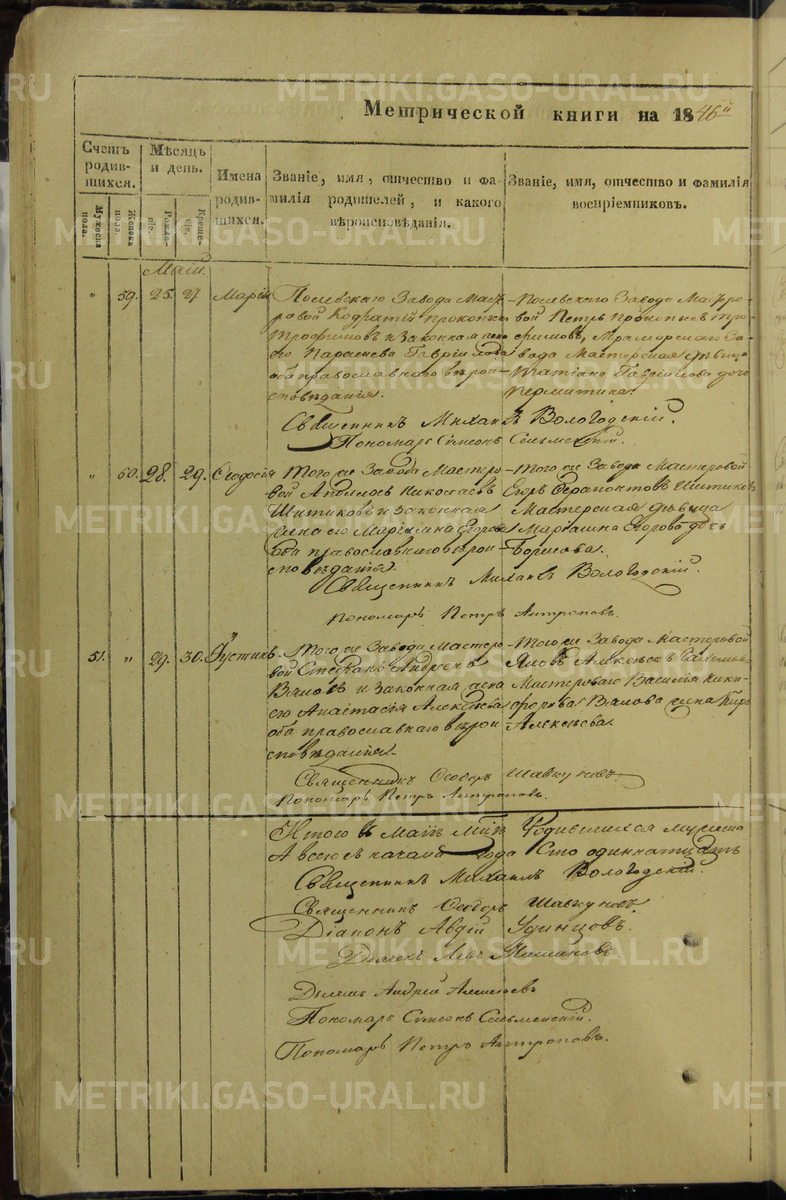 METRIKI.GASO-URAL.RU
Метрической книги на 1846й
Счетъ родив-шихся.
Мѣсяцъ и день.
Имена родив-шихся.
Званіе, имя, отчество и фа-милія родителей, и какого вѣроисповѣданія.
Званіе, имя, отчество и фамилія воспріемниковъ.
Мужеска пола.
Женска пола.
Рожде-ніе.
Креще-ніе.
Маій.
" 59. 25. 27. Марія
Полевскаго Завода Масте-
ровой Кодратій Прокопьевъ
Трофимовъ и законная жена
его Параскева Гавриилова
оба православнаго вѣрои-
сповѣданія.
Полевскаго Завода Мастеро-
вой Петръ Прокопьевъ Тро-
фимовъ, Мраморскаго За-
вода Мастерская дѣвица
Татіана Гавриилова дочь
Пермитина.
Священникъ Михаилъ Вологодскій.
Пономарь Симеонъ Сельменскій.
" 60. 28. 29. Ѳеодосія
Того же Завода Мастеро-
вой Николаевъ
Шитиковъ и законная
жена его Маріамна Егорова
оба православнаго вѣрои-
сповѣданія.
Того же Завода Мастеровой
Егоръ Ферапонтовъ Шитиковъ
Мастерская дѣвица
Маріамна Егорова дочь
Борисова.
Священникъ Михаилъ Вологодскій.
Пономарь Петръ Антроповъ.
51. " 29. 30. Іустинъ.
Того же Завода Мастеро-
вой Стефанъ Андреевъ
Вяловъ и законная жена
его Анастасія Алексѣева
оба православнаго вѣрои-
сповѣданія.
Того же Завода Мастеровой
Яковъ Алексѣевъ
Мастероваго Василія Ники-
форова Вялова жена
Алексѣева.
Священникъ Ѳеодоръ Шавкуновъ.
Пономарь Петръ Антроповъ.
Итого въ Маіѣ м-цѣ родившихся мужеска
А всего съ начала года Сто одиннатцать
Священникъ Михаилъ Вологодскій.
Священникъ Ѳеодоръ Шавкуновъ
Діаконъ Авдій Удинцовъ.
Дьячекъ
Дьячекъ Андрей Алексѣевъ
Пономарь Симеонъ Сельменскій.
Пономарь Петръ Антроповъ.